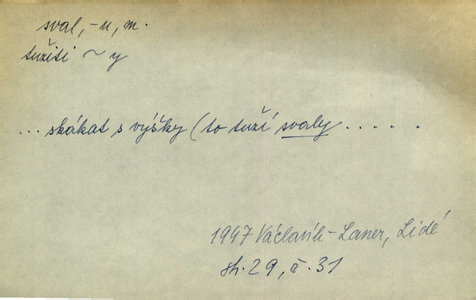 sval, -u, m.
tužiti ~ y
... skákat s výšky (to tuží svaly . . . . .
1947 Václavík-Laner, Lidé
str. 29, ř. 31